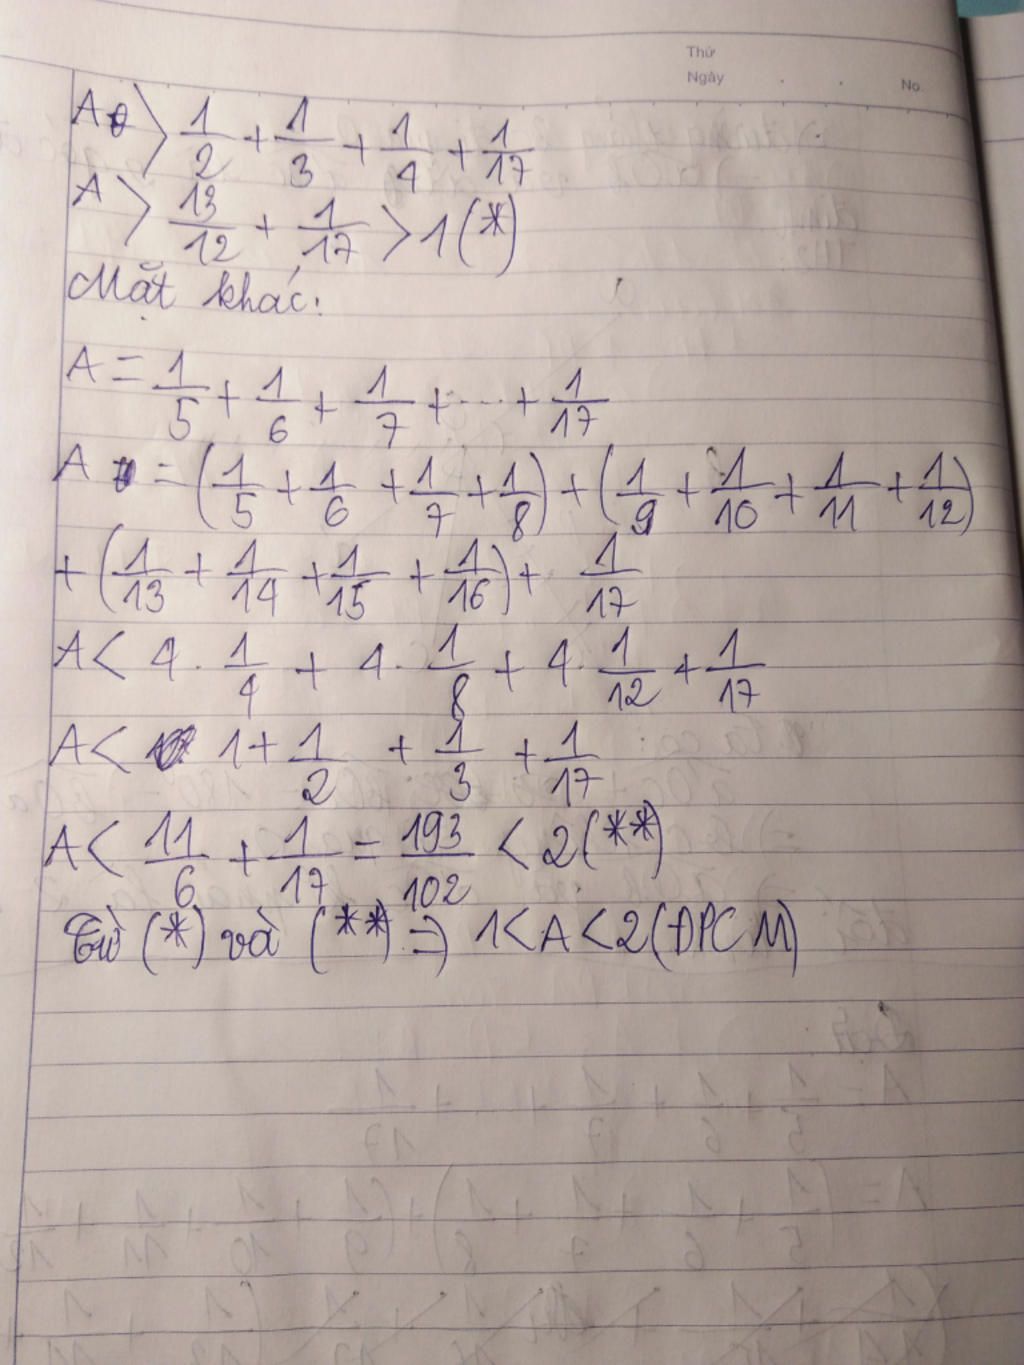 Thứ
Ngày . . No.
A > 1/2 + 1/3 + 1/4 + 1/17
A > 13/12 + 1/17 > 1 (*)
Mặt khác:
A = 1/5 + 1/6 + 1/7 + ... + 1/17
A = (1/5 + 1/6 + 1/7 + 1/8) + (1/9 + 1/10 + 1/11 + 1/12)
+ (1/13 + 1/14 + 1/15 + 1/16) + 1/17
A < 4 . 1/4 + 4 . 1/8 + 4 . 1/12 + 1/17
A < 1 + 1/2 + 1/3 + 1/17
A < 11/6 + 1/17 = 193/102 < 2 (**)
Từ (*) và (**) => 1 < A < 2 (ĐPCM)